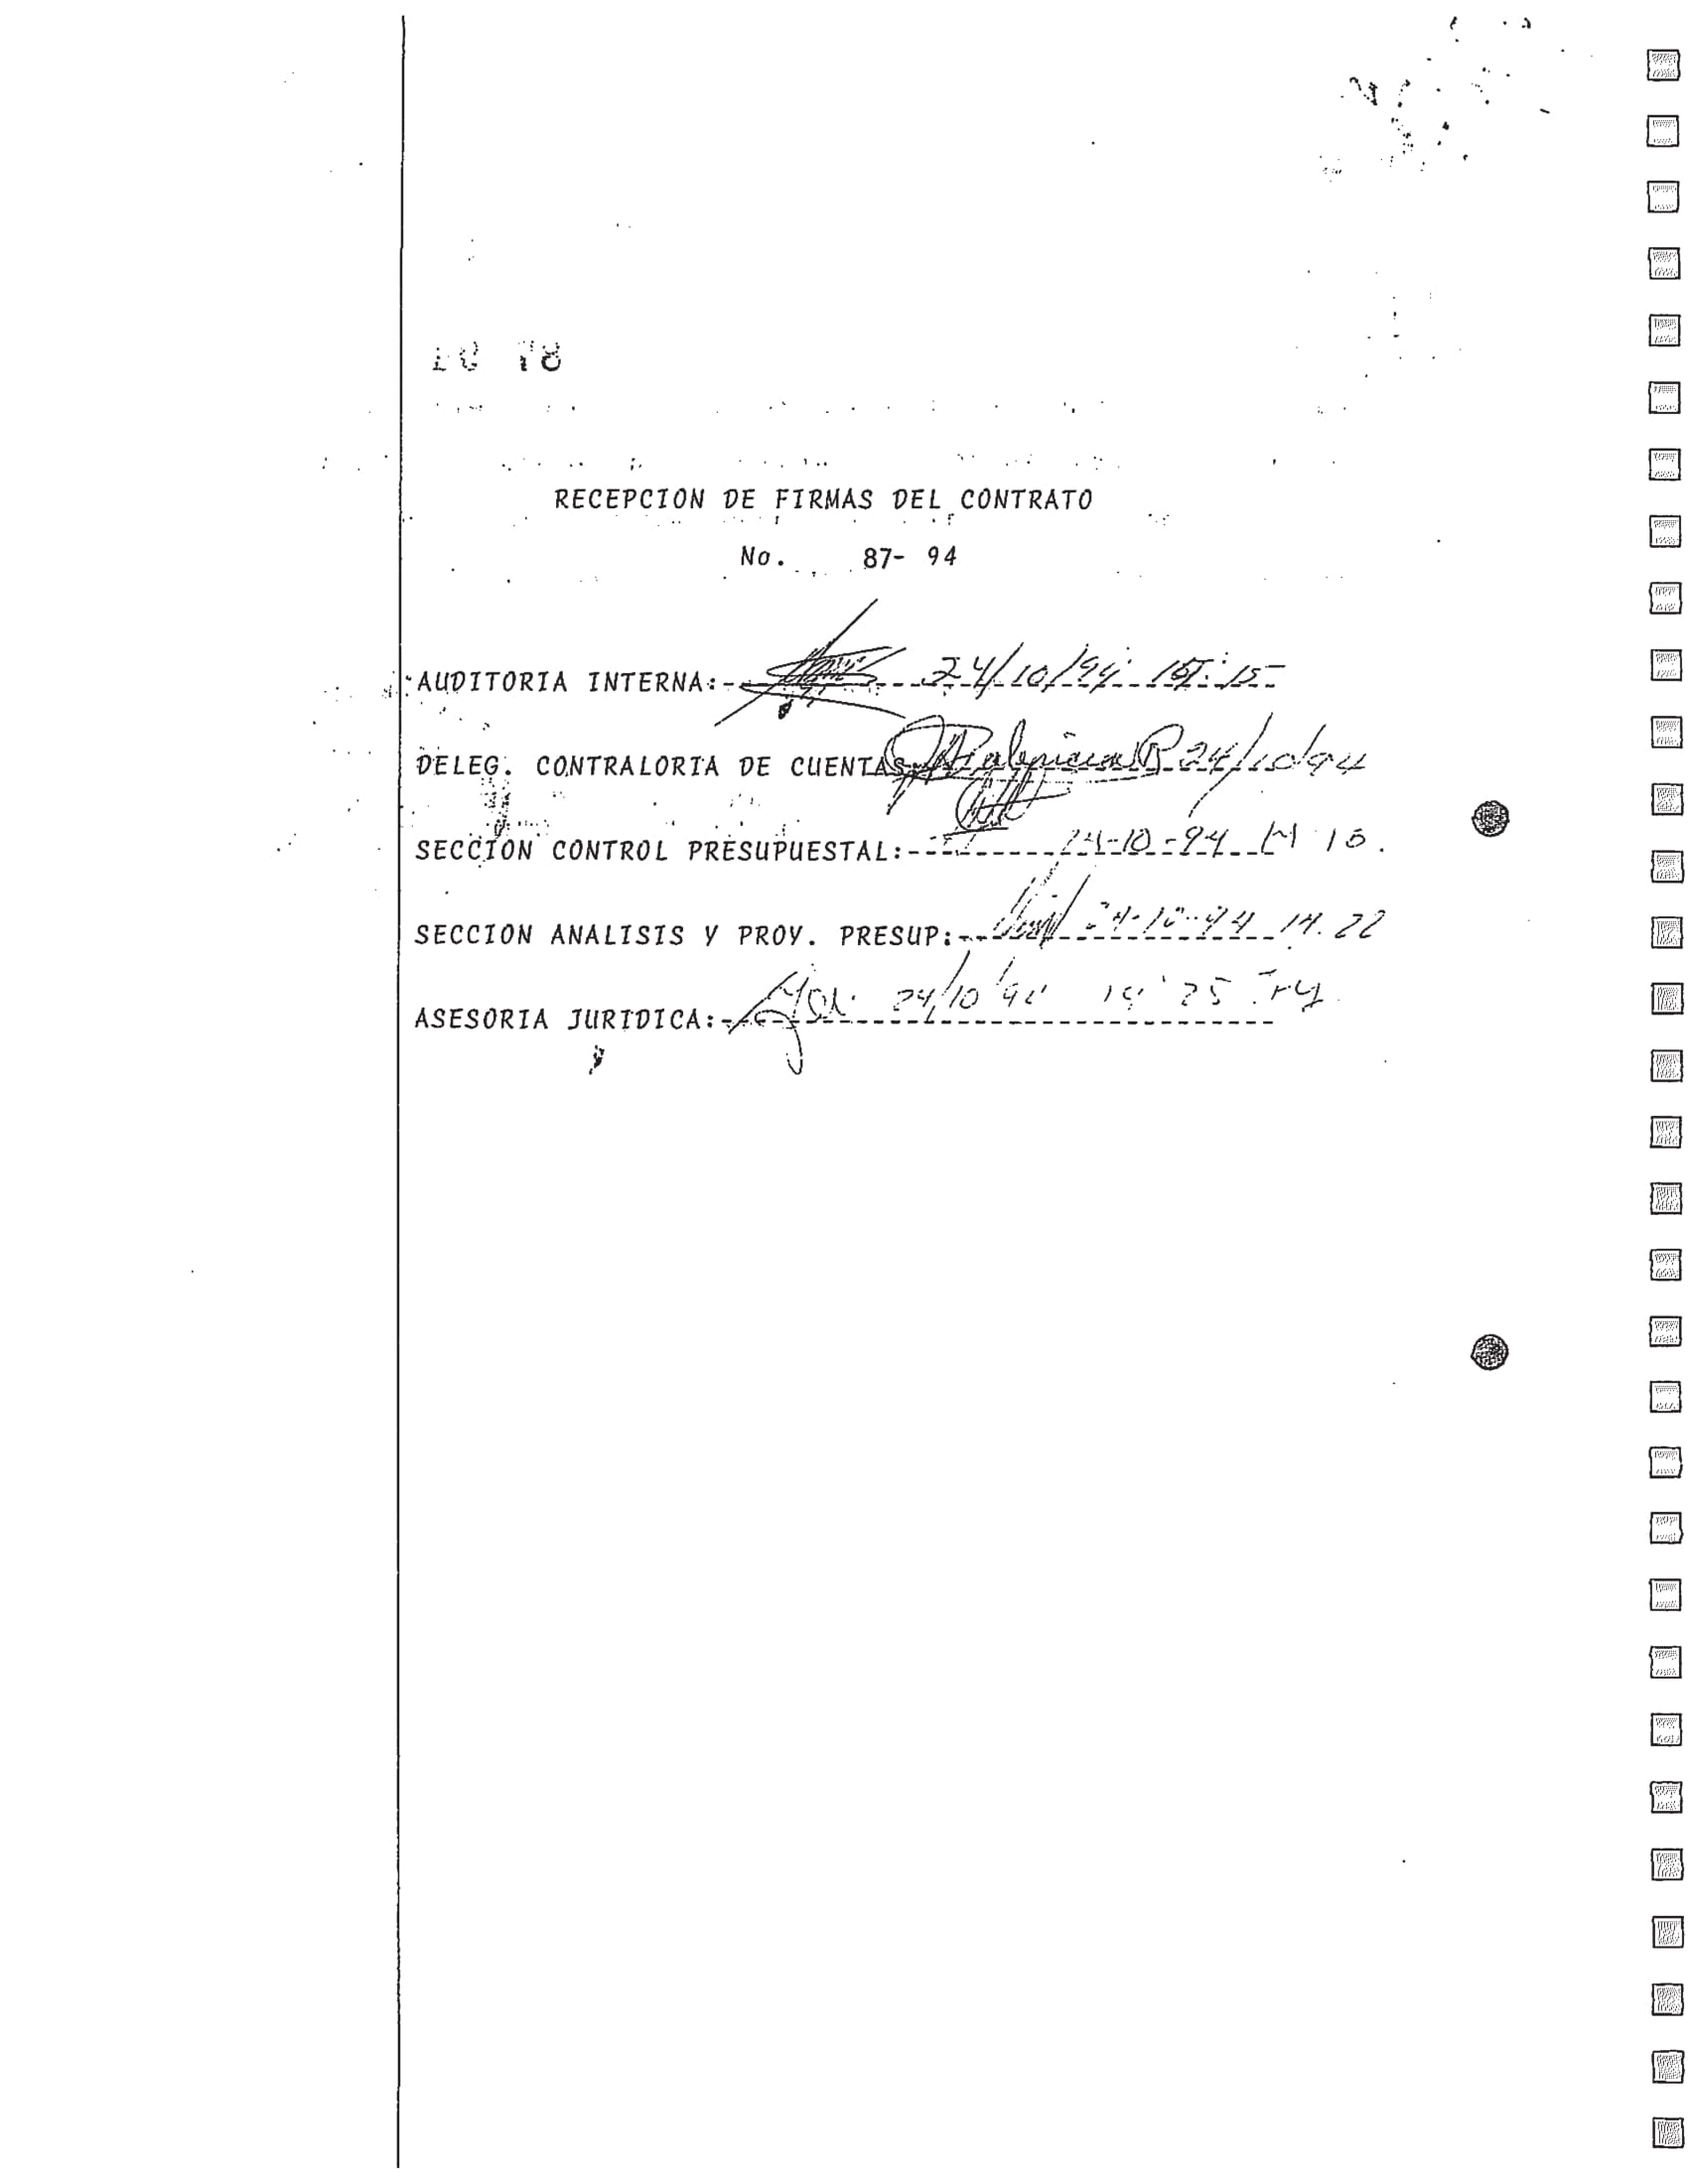 RECEPCION DE FIRMAS DEL CONTRATO
No. 87- 94
AUDITORIA INTERNA: 24/10/94 15:15
DELEG. CONTRALORIA DE CUENTAS 24/10/94
SECCION CONTROL PRESUPUESTAL: 24-10-94
SECCION ANALISIS Y PROY. PRESUP: 24-10-94 14.22
ASESORIA JURIDICA: 24/10/94 14:25